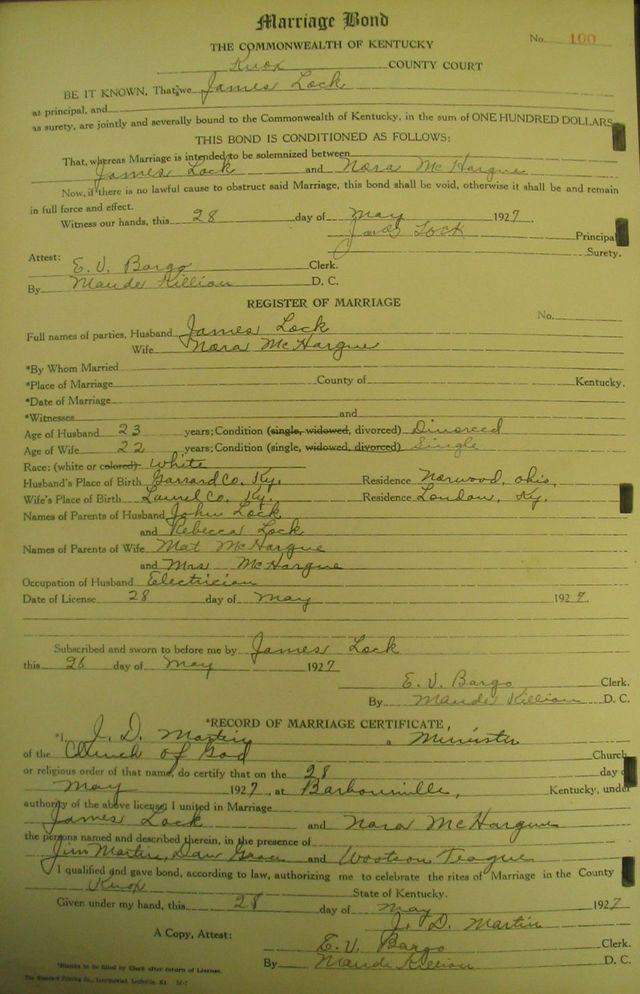 Marriage Bond
No. 100
THE COMMONWEALTH OF KENTUCKY
Knox COUNTY COURT
BE IT KNOWN, That we James Lock
as principal, and
as surety, are jointly and severally bound to the Commonwealth of Kentucky, in the sum of ONE HUNDRED DOLLARS
THIS BOND IS CONDITIONED AS FOLLOWS:
That, whereas Marriage is intended to be solemnized between
James Lock and Nora McHargue
Now, if there is no lawful cause to obstruct said Marriage, this bond shall be void, otherwise it shall be and remain
in full force and effect.
Witness our hands, this 28 day of May 1927.
James Lock Principal
Surety.
Attest:
E. V. Bargo Clerk.
By Maude Killion D. C.
REGISTER OF MARRIAGE
No.
Full names of parties, Husband James Lock
Wife Nora McHargue
*By Whom Married
*Place of Marriage County of Kentucky.
*Date of Marriage
*Witnesses and
Age of Husband 23 years; Condition (single, widowed, divorced) Divorced
Age of Wife 22 years; Condition (single, widowed, divorced) Single
Race: (white or colored) White
Husband's Place of Birth Garrard Co. Ky. Residence Norwood, Ohio,
Wife's Place of Birth Laurel Co. Ky. Residence London, Ky.
Names of Parents of Husband John Lock
and Rebecca Lock
Names of Parents of Wife Mat McHargue
and Mrs McHargue
Occupation of Husband Electrician
Date of License 28 day of May 1927.
Subscribed and sworn to before me by James Lock
this 26 day of May 1927
E. V. Bargo Clerk.
By Maude Killion D. C.
*RECORD OF MARRIAGE CERTIFICATE,
*I, J. D. Martin a Minister
of the Church of God Church
or religious order of that name, do certify that on the 28 day
May 1927, at Barbourville, Kentucky, under
authority of the above license, I united in Marriage
James Lock and Nora McHargue
the persons named and described therein, in the presence of
Jim Martin, Dan and Wootson Teague
I qualified and gave bond, according to law, authorizing me to celebrate the rites of Marriage in the County
Knox State of Kentucky.
Given under my hand, this 28 day of May 1927
J. D. Martin
A Copy, Attest:
E. V. Bargo Clerk.
By Maude Killion D. C.
*Blanks to be filled by Clerk after return of License.
The Standard Printing Co., Incorporated, Louisville, Ky.